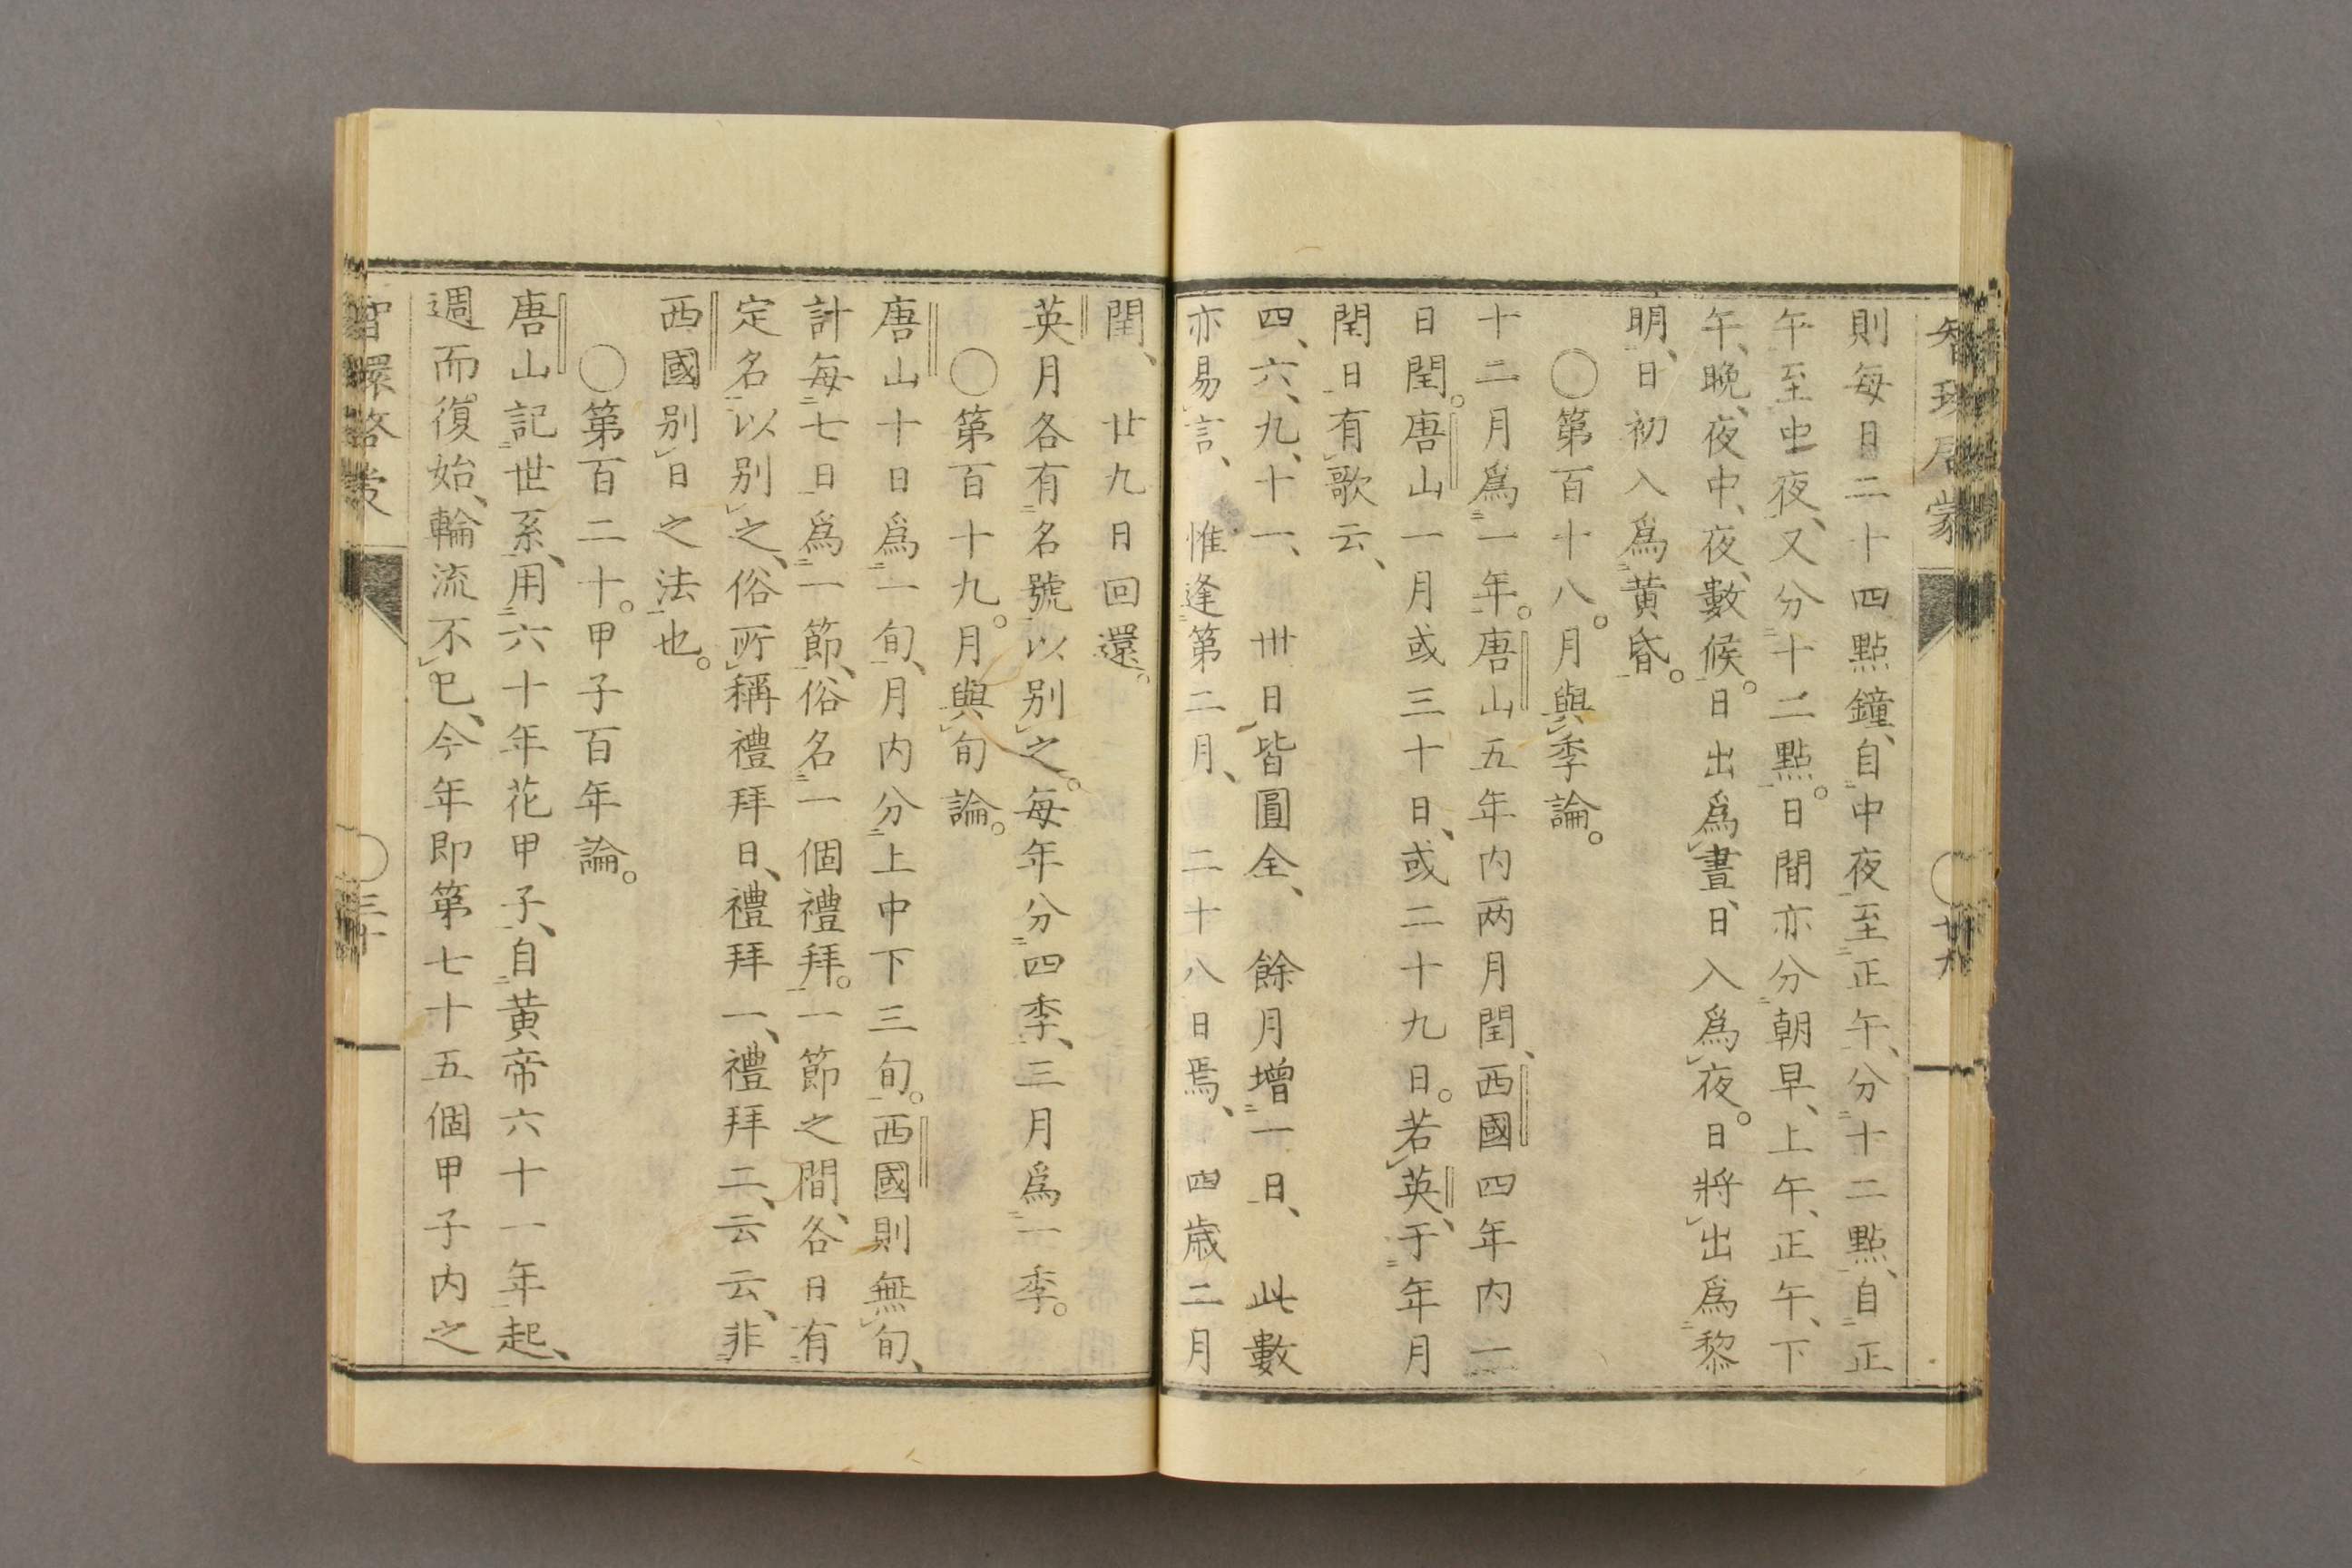 智環啓蒙
廿九
則每日二十四點鐘、自中夜至正午、分十二點、自正
午至中夜、又分十二點。日間亦分朝早、上午、正午、下
午、晚、夜中、夜、數候。日出爲晝、日入爲夜。日將出爲黎
明、日初入爲黃昏。
○第百十八。月與季論。
十二月爲一年。唐山五年内两月閏、西國四年内一
日閏。唐山一月或三十日、或二十九日。若英、于年月
閏日有歌云、
四、六、九、十一、 卅日皆圓全、 餘月增一日、 此數
亦易言、 惟逢第二月、 二十八日焉、 四歲二月
閏、 廿九日回還。
英月各有名號以别之。每年分四季、三月爲一季。
○第百十九。月與旬論。
唐山十日爲一旬、月内分上中下三旬。西國則無旬、
計每七日爲一節、俗名一個禮拜。一節之間、各日有
定名以别之、俗所稱禮拜日、禮拜一、禮拜二、云云、非
西國别日之法也。
○第百二十。甲子百年論。
唐山記世系、用六十年花甲子、自黃帝六十一年起、
週而復始、輪流不已、今年即第七十五個甲子内之
智環啓蒙
○三十